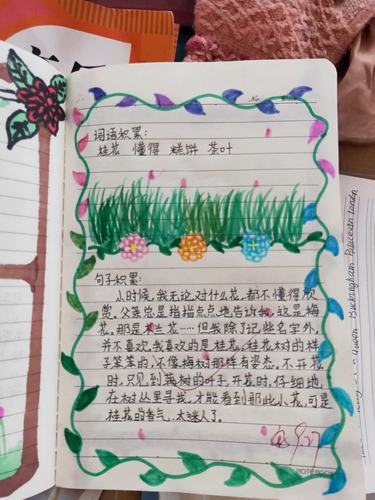 No.
词语积累:
桂花 懂得 糕饼 茶叶
句子积累:
小时候,我无论对什么花,都不懂得欣
赏。父亲总是指指点点地告诉我,这是梅
花,那是木兰花……但我除了记些名字外,
并不喜欢。我喜欢的是桂花。桂花树的样
子笨笨的,不像梅树那样有姿态。不开花
时,只见到满树的叶子;开花时,仔细地
在树丛里寻找,才能看到那些小花。可是
桂花的香气,太迷人了。
NOTEBOOK
Queen Buckingham Palace in London